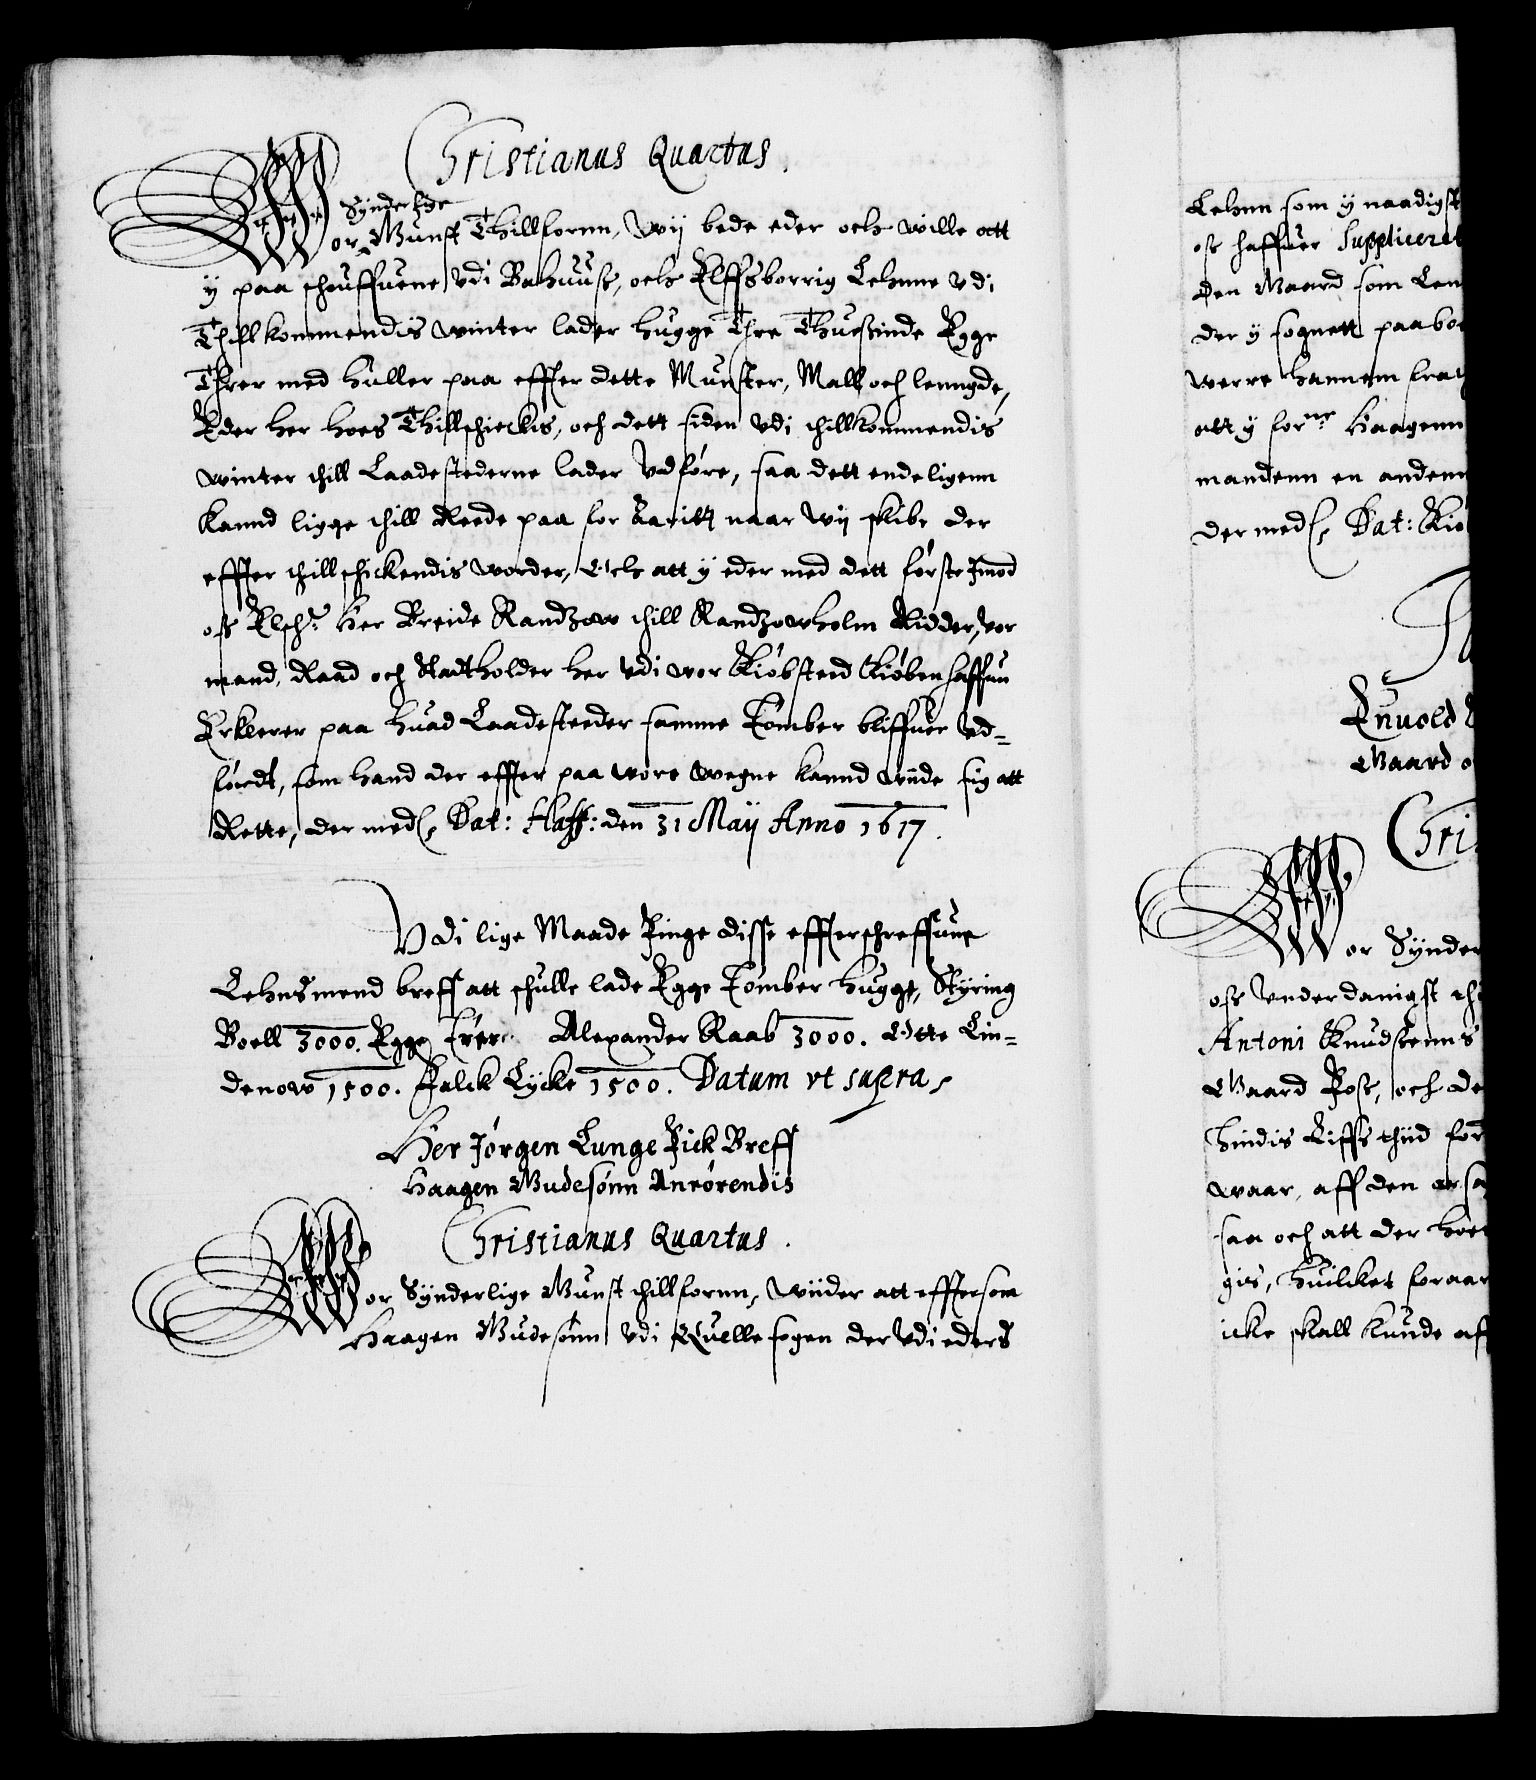 Christianus Quartus.
Synderlige
Wor Gunst Thillfornn, Wij bede eder och wille att
y paa schouffuene Vdi Bahuus, och Elffsborrig Lehnne vdi
Thillkommendis winter lader hugge Thre Thuesinde Egge
Threr med huller paa effter dette Munster, Mall och lenngde,
Eder her hoes Thillschickis, och dett siden vdi thillkommendis
winter thill Laadestederne lader Vdføre, saa dett endeligenn
kannd ligge thill Reede paa for Aaritt naar Wij skibe der
effter thillschickendis worder, Och att y eder med dett første Imod
oss Elsch: Her Breide Randzow thill Randzowholm Ridder, vor
mand, Raad och Stadtholder her vdi vor Kiøbsteed Kiøbenhaffun
Erklerer paa huad Laadesteeder samme Tømber bliffuer Vd-
førdt, som hand der effter paa wore wegne kannd wiide sig att
Rette, der med Dat: Haff: den 31 Maij Anno 1617.
Vdi lige Maade Finge disse effterschreffune
Lehnsmend breff att schulle lade Egge Tømber hugge, Styring
Boell 3000. Egge Trer. Alexander Raab 3000. Otte Lin-
denow 1500. Falck Lycke 1500. Datum vt supra,
Her Jørgen Lunge Fick Breff
Haagen Gudesønn Anrørendis
Christianus Quartus.
Wor Synderlige Gunst thillfornn, Wiider att efftersom
Haagen Gudesønn vdi Quelle sogen der vdi eders
Lehnn som y naadigst
oss haffuer Suppliceret
den Gaard som Len
der y sognett paaboe
werre hannem fra
att y for:ne Haagenn
mandenn en andenn
der med Dat: Kiø
Enuold
Gaard
Chri
Wor Synder
oss Vnderdanigst th
Antoni Knudsenns
Gaard Foss, och de
hindis Liffs thiid for
waar, aff den
saa och att der hoe
gis, huilcket foraar
icke skall kunde aff